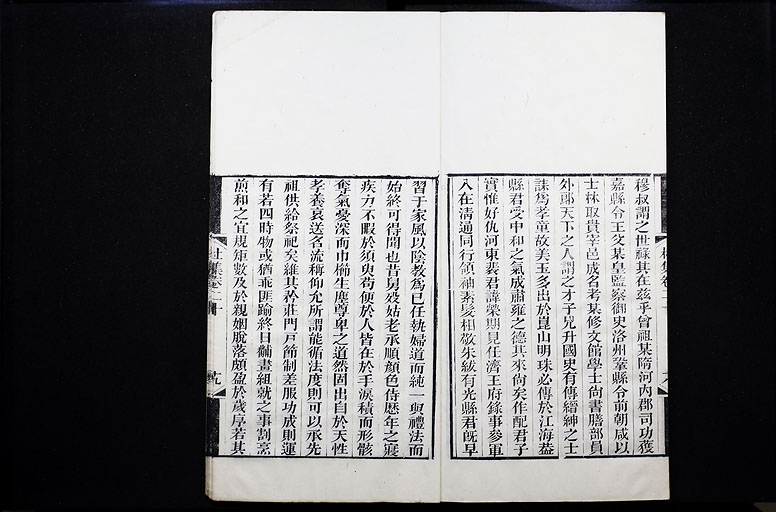 穆叔謂之世祿其在茲乎曾祖某隋河內郡司功獲
嘉縣令王父某皇監察御史洛州鞏縣令前朝咸以
士林取貴宰邑成名考某修文館學士尚書膳部員
外郎天下之人謂之才子兄升國史有傳縉紳之士
誄為孝童故美玉多出於崑山明珠必傳於江海葢
縣君受中和之氣成肅雍之德其來尙矣作配君子
實惟好仇河東裴君諱榮期見任濟王府錄事參軍
入在淸通同行領袖素髮相敬朱紱有光縣君旣早
習于家風以陰敎為已任執婦道而純一與禮法而
始終可得聞也昔舅歿姑老承順顏色侍歷年之寢
疾力不暇於須臾苟便於人皆在於手淚積而形骸
奪氣憂深而巾櫛生塵尊卑之道然固出自於天性
孝養哀送名流稱仰允所謂能循法度則可以承先
祖供給祭祀矣維其矜莊門戸節制差服功成則運
有若四時物或猶乖匪踰終日黼畫組就之事割烹
煎和之宜規矩數及於親姻脫落頗盈於歲序若其
杜集卷二十